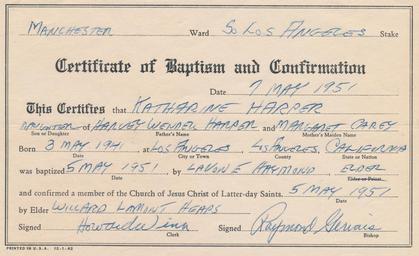 MANCHESTER Ward So LOS ANGELES Stake
Certificate of Baptism and Confirmation
Date 7 MAY 1951
This Certifies that KATHARINE HARPER
DAUGHTER of HARVEY WENDEL HARPER and MARGARET CAREY
Son or Daughter Father's Name Mother's Maiden Name
Born 3 MAY 1941 at LOS ANGELES LOS ANGELES, CALIFORNIA
Date City or Town County State or Nation
was baptized 5 MAY 1951 by LAVON E RAYMOND, ELDER
Date Elder or Priest
and confirmed a member of the Church of Jesus Christ of Latter-day Saints. 5 MAY 1951
Date
by Elder WILLARD LAMONT HEAPS
Signed Howard Raymond
Signed Clerk Bishop
PRINTED IN U.S.A. 12-1-42